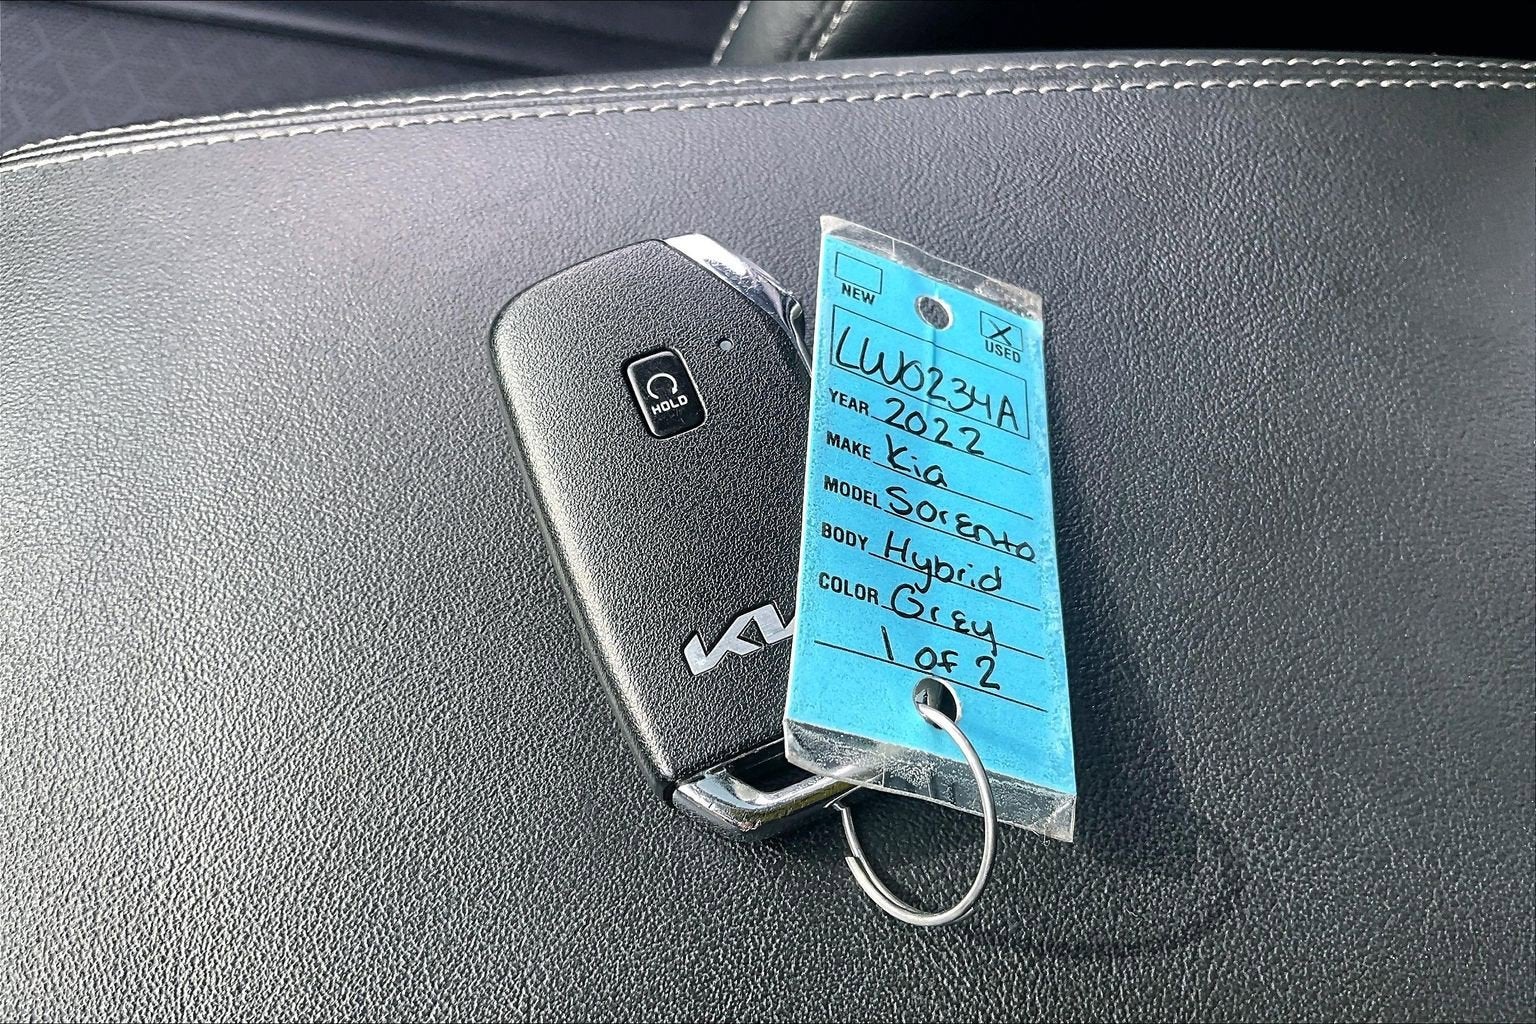 HOLD
KIA
NEW
X
USED
LW0234A
YEAR 2022
MAKE Kia
MODEL Sorento
BODY Hybrid
COLOR Grey
1 of 2